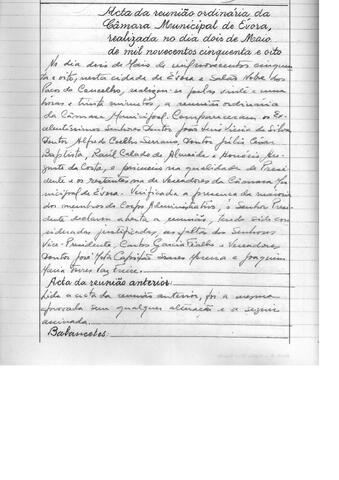 Acta da reunião ordinária da
Câmara Municipal de Évora,
realizada no dia dois de Maio
de mil novecentos cinquenta e oito
No dia dois de Maio de mil novecentos cinquen
ta e oito, nesta cidade de Évora e Salão Nobre dos
Paços do Concelho, realizou-se pelas vinte e uma
horas e trinta minutos, a reunião ordinária
da Câmara Municipal. Compareceram os Ex
celentíssimos Senhores Doutor João Luís Vieira da Silva,
Doutor Alfredo Coelho Serrano, Doutor Júlio César
Baptista, Raúl Calado de Almeida e Honório Au
gusto da Costa, o primeiro na qualidade de Presi
dente e os restantes na de Vereadores da Câmara Mu
nicipal de Évora. Verificada a presença da maioria
dos membros do Corpo Administrativo, o Senhor Presi
dente declarou aberta a reunião, tendo sido con
sideradas justificadas, as faltas dos Senhores
Vice-Presidente, Carlos Garcia Fialho e Vereadores,
Doutor José Mota Capitão Soares Morena e Joaquim
Maria Torres Vaz Freire.
Acta da reunião anterior:
Lida a acta da reunião anterior, foi a mesma
aprovada sem qualquer alteração e a seguir
assinada.
Balancetes: